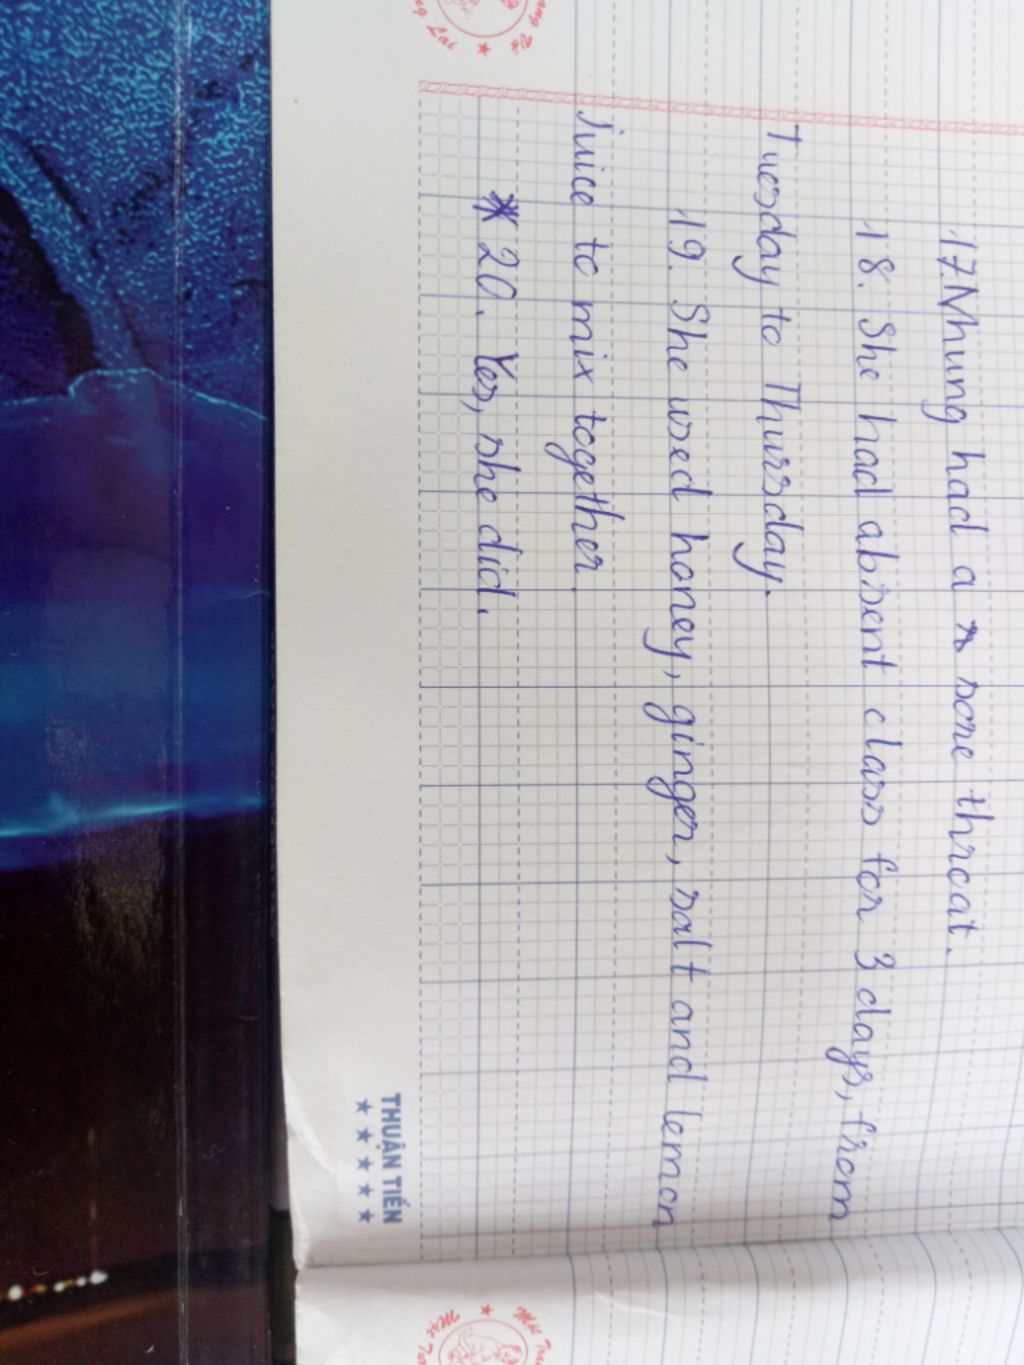 17. Nhung had a sore throat.
18. She had absent class for 3 days, from
Tuesday to Thursday.
19. She used honey, ginger, salt and lemon
juice to mix together.
* 20. Yes, she did.
THUẬN TIẾN